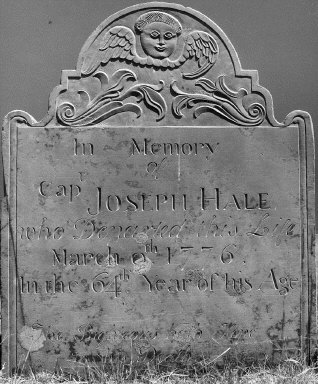 In Memory
of
Capt JOSEPH HALE
who Departed this Life
March 9th 1776.
In the 64th Year of his Age